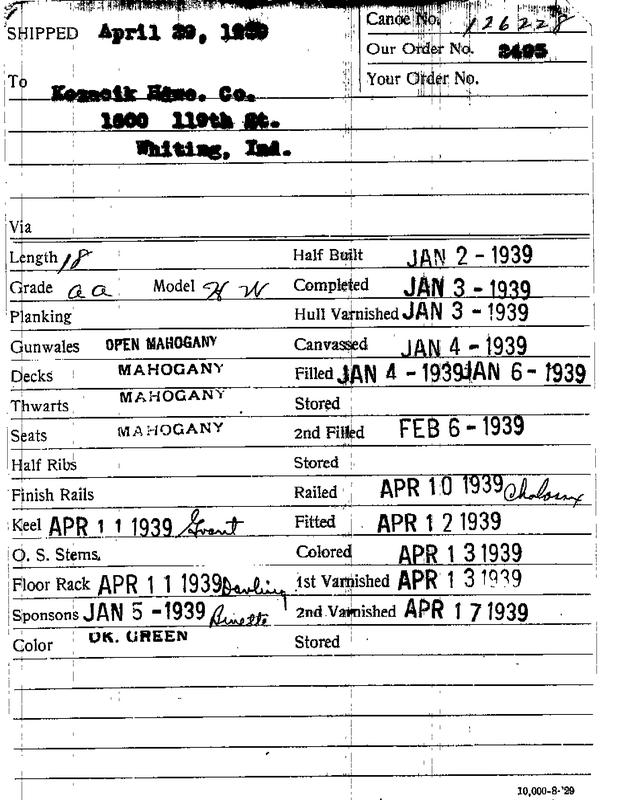 SHIPPED April 29, 1939
Canoe No. 126228
Our Order No. 2495
Your Order No.
To
Co.
1600 119th St.
Whiting, Ind.
Via
Length 18
Half Built JAN 2 - 1939
Grade AA Model HW
Completed JAN 3 - 1939
Planking
Hull Varnished JAN 3 - 1939
Gunwales OPEN MAHOGANY
Canvassed JAN 4 - 1939
Decks MAHOGANY
Filled JAN 4 - 1939 JAN 6 - 1939
Thwarts MAHOGANY
Stored
Seats MAHOGANY
2nd Filled FEB 6 - 1939
Half Ribs
Stored
Finish Rails
Railed APR 10 1939
Keel APR 11 1939 Grant
Fitted APR 12 1939
O. S. Stems
Colored APR 13 1939
Floor Rack APR 11 1939 Darling
1st Varnished APR 13 1939
Sponsons JAN 5 - 1939 Binette
2nd Varnished APR 17 1939
Color DK. GREEN
Stored
10,000-8-'29